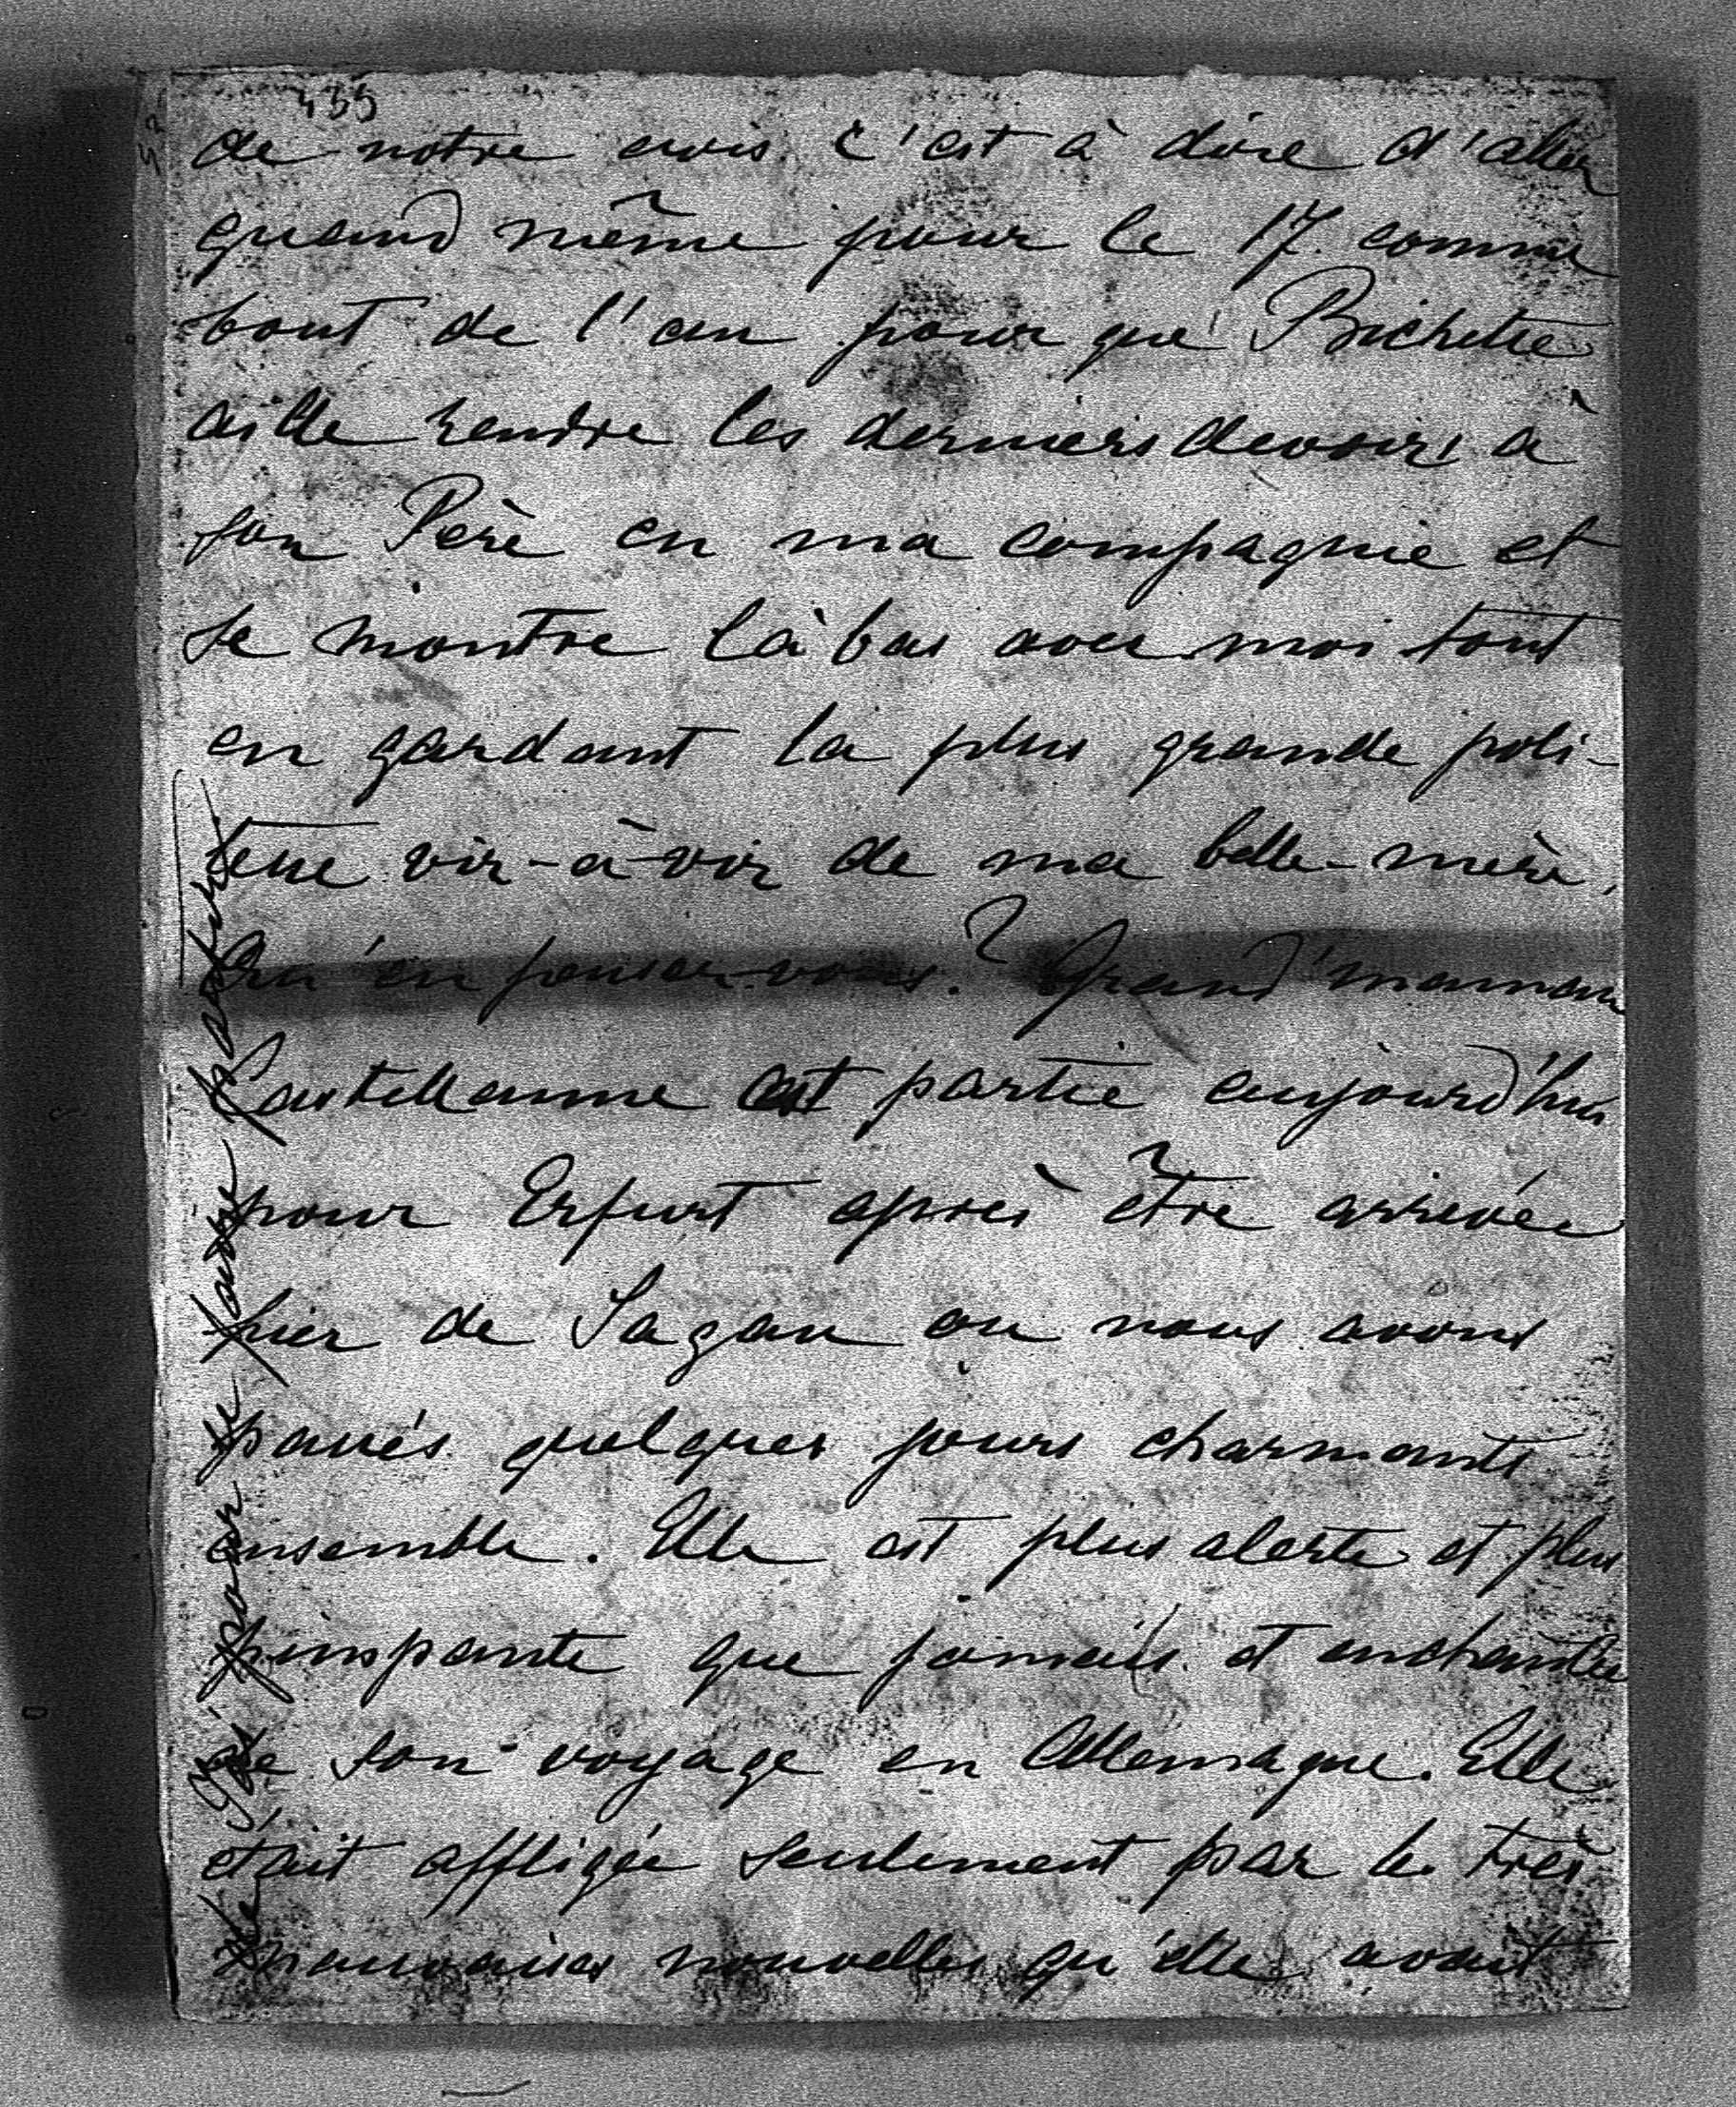 435
de notre avis. c'est à dire d'aller
quand même pour le 17 comme
bout de l'an pour que Bichette
aille rendre les derniers devoirs à
son Père en ma compagnie et
se montre là bas avec moi tout
en gardant la plus grande poli-
tesse vis-à-vis de ma belle-mère.
Qu'en pensez-vous? Grand'maman
Castellanne est partie aujourd'hui
pour Erfurt après être arrivée
hier de Sagan où nous avons
passés quelques jours charmants
ensemble. Elle est plus alerte et plus
pimpante que jamais et enchantée
de son voyage en Allemagne. Elle
était affligée seulement par le très
mauvaises nouvelles qu'elle avait
de
par